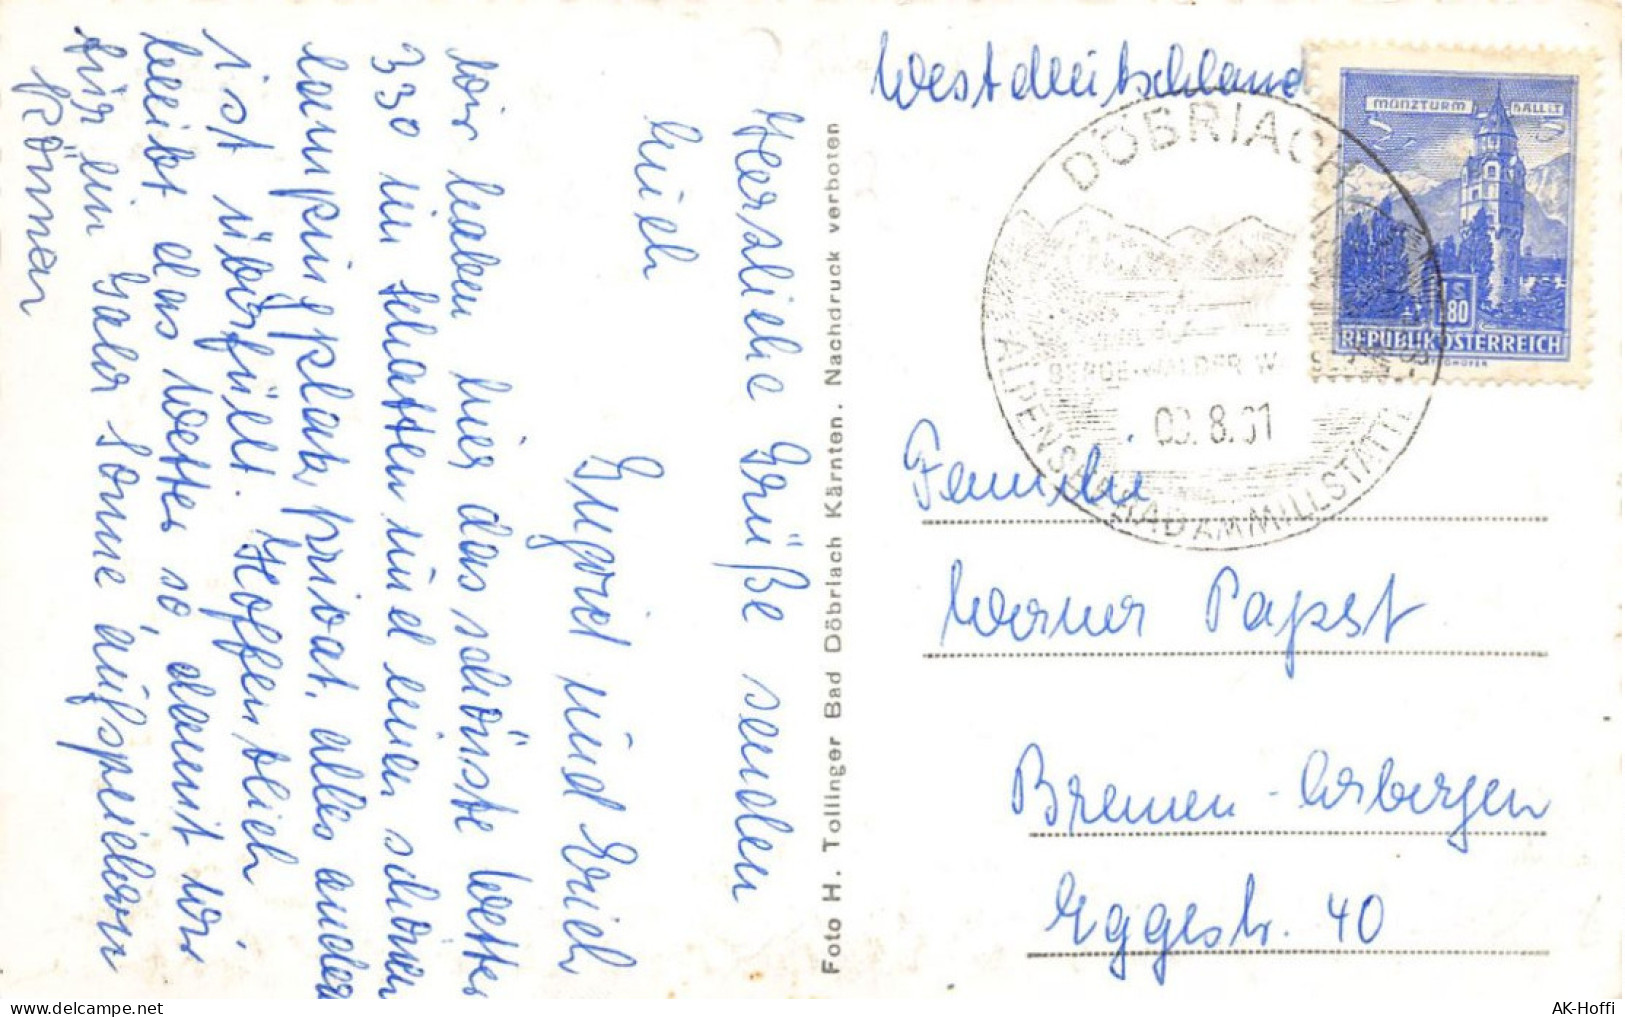 Herzliche Grüße senden
Euch
Ingrid und Erich
Wir haben hier das schönste Wetter
330 im Schatten und einen schönen
Campingplatz privat, alles andere
ist überfüllt. Hoffentlich
bleibt das Wetter so, damit wir
für ein Jahr Sonne aufspeichern
können
Foto H. Tollinger Bad Döbriach Kärnten. Nachdruck verboten
Westdeutschland
MÜNZTURM HALL I.T.
S 1.80
REPUBLIK ÖSTERREICH
DÖBRIACH
BERGE-WÄLDER
8.61
STRANDBAD AM MILLSTÄTTER
Familie
Werner Papst
Bremen-Arbergen
Eggestr. 40
AK-Hoffi